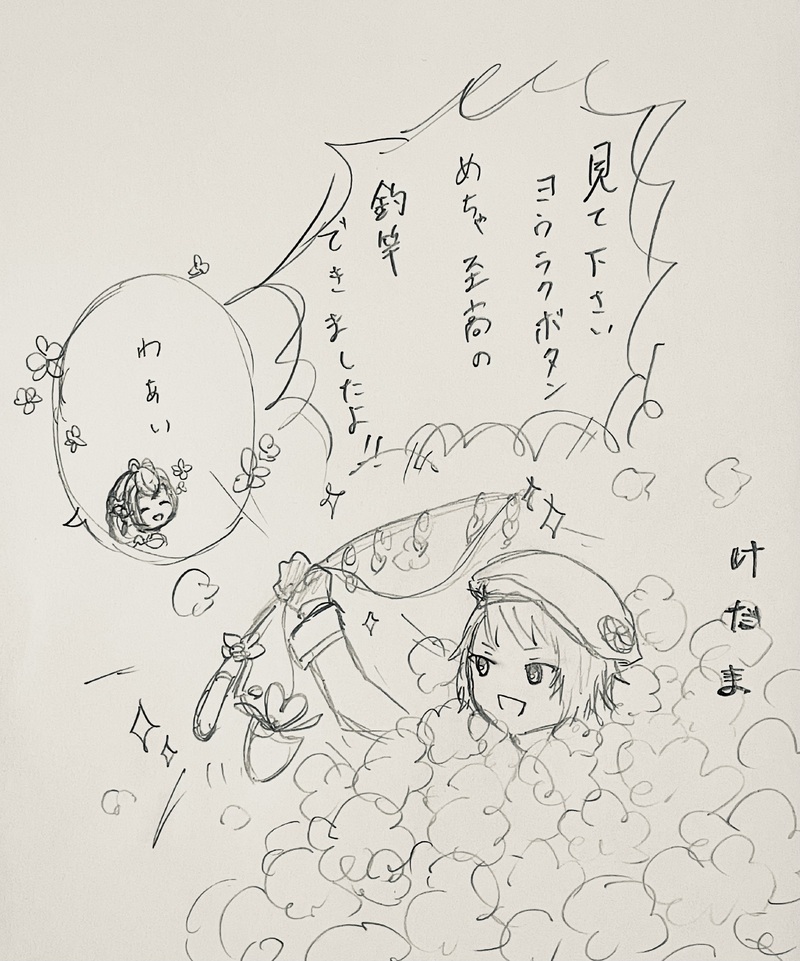 見て下さい
ヨウラクボタン
めちゃ至高の
釣竿
できましたよ!!
わあい
けだま